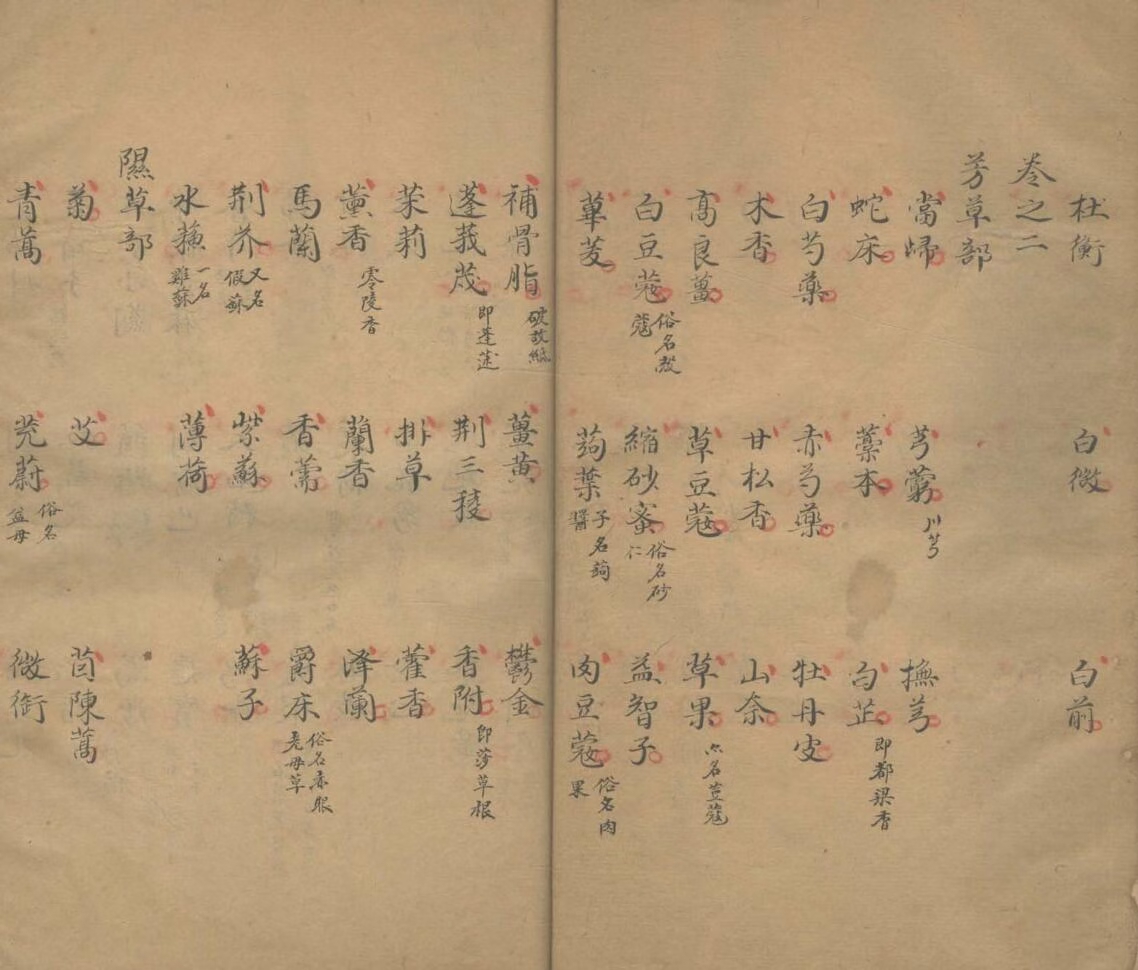 杜衡 白微 白前
卷之二
芳草部
當歸 芎藭 川芎 撫芎
蛇床 藁本 白芷 即都梁香
白芍藥 赤芍藥 牡丹皮
木香 甘松香 山奈
高良薑 草豆蔻 草果 亦名荳蔻
白豆蔻 俗名殼蔻 縮砂蜜 俗名砂仁 益智子
蓽茇 蒟葉 子名蒟醬 肉豆蔻 俗名肉果
補骨脂 破故紙 薑黃 鬱金
蓬莪茂 即蓬莪 荊三稜 香附 即莎草根
茉莉 排草 藿香
薰香 零陵香 蘭香 澤蘭
馬蘭 香薷 爵床 俗名赤眼老母草
荊芥 又名假蘇 紫蘇 蘇子
水蘇 一名雞蘇 薄荷
隰草部
菊 艾 茵陳蒿
青蒿 茺蔚 俗名益母 微銜